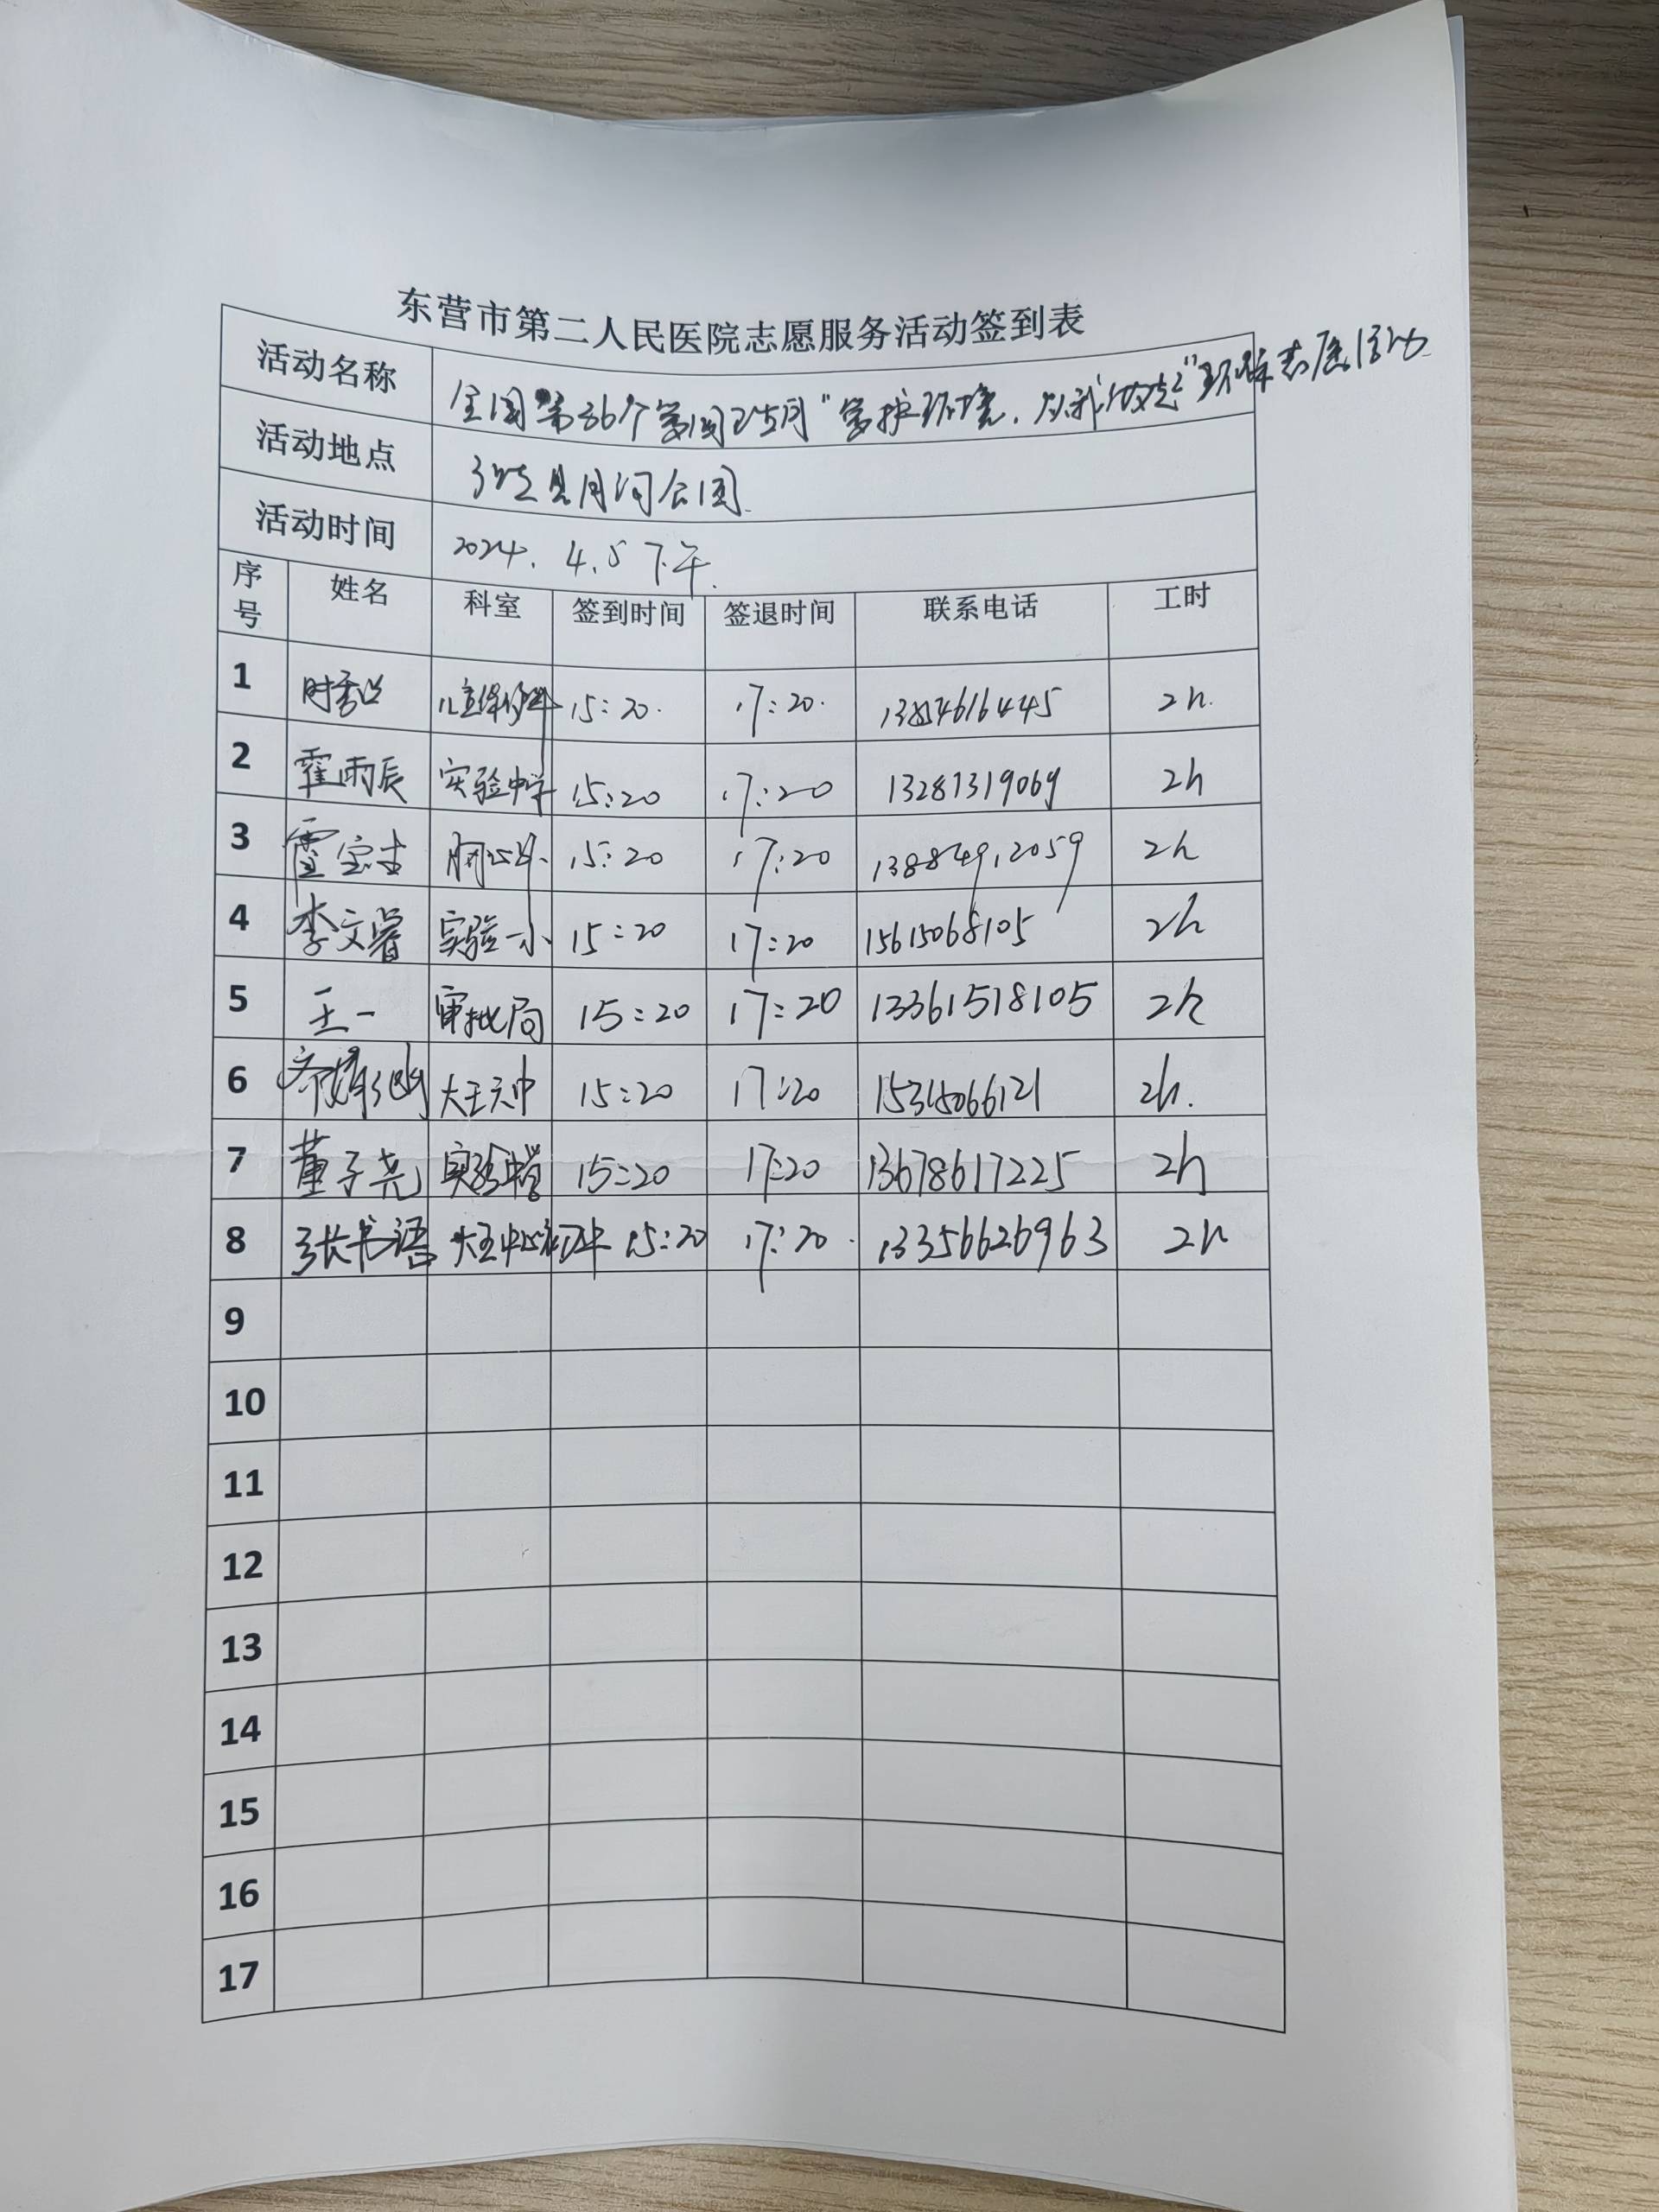 东营市第二人民医院志愿服务活动签到表
活动名称 全国第36个爱国卫生月“爱护环境,从我做起”环保志愿活动
活动地点 广饶县月河公园
活动时间 2024.4.5下午
序号 姓名 科室 签到时间 签退时间 联系电话 工时
1 儿童保健科 15:20 17:20 13854616445 2h
2 霍雨辰 实验中学 15:20 17:20 13281319069 2h
3 胸心外 15:20 17:20 13884912059 2h
4 李文睿 实验一小 15:20 17:20 15615068105 2h
5 王一 审批局 15:20 17:20 13361518105 2h
6 15:20 17:20 15315066121 2h.
7 董子尧 实验中学 15:20 17:20 13678617225 2h
8 张书语 大王中心初中 15:20 17:20 13356626963 2h
9
10
11
12
13
14
15
16
17